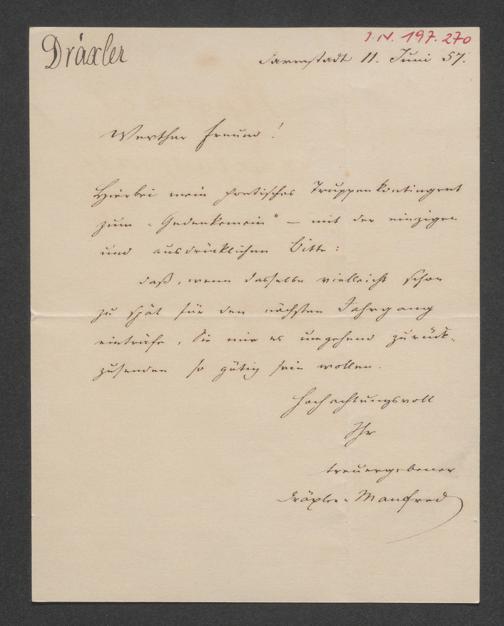 Dräxler
J.N. 197.270
Darmstadt 11. Juni 57.
Werther Freund!
Hierbei mein poetisches Truppenkontingent
zum „Gedenkemein“ – mit der einzigen
und ausdrücklichen Bitte:
daß, wenn dasselbe vielleicht schon
zu spät für den nächsten Jahrgang
einträfe, Sie mir es umgehend zurück-
zusenden so gütig sein wollen.
Hochachtungsvoll
Ihr
treuergebener
Dräxler-Manfred